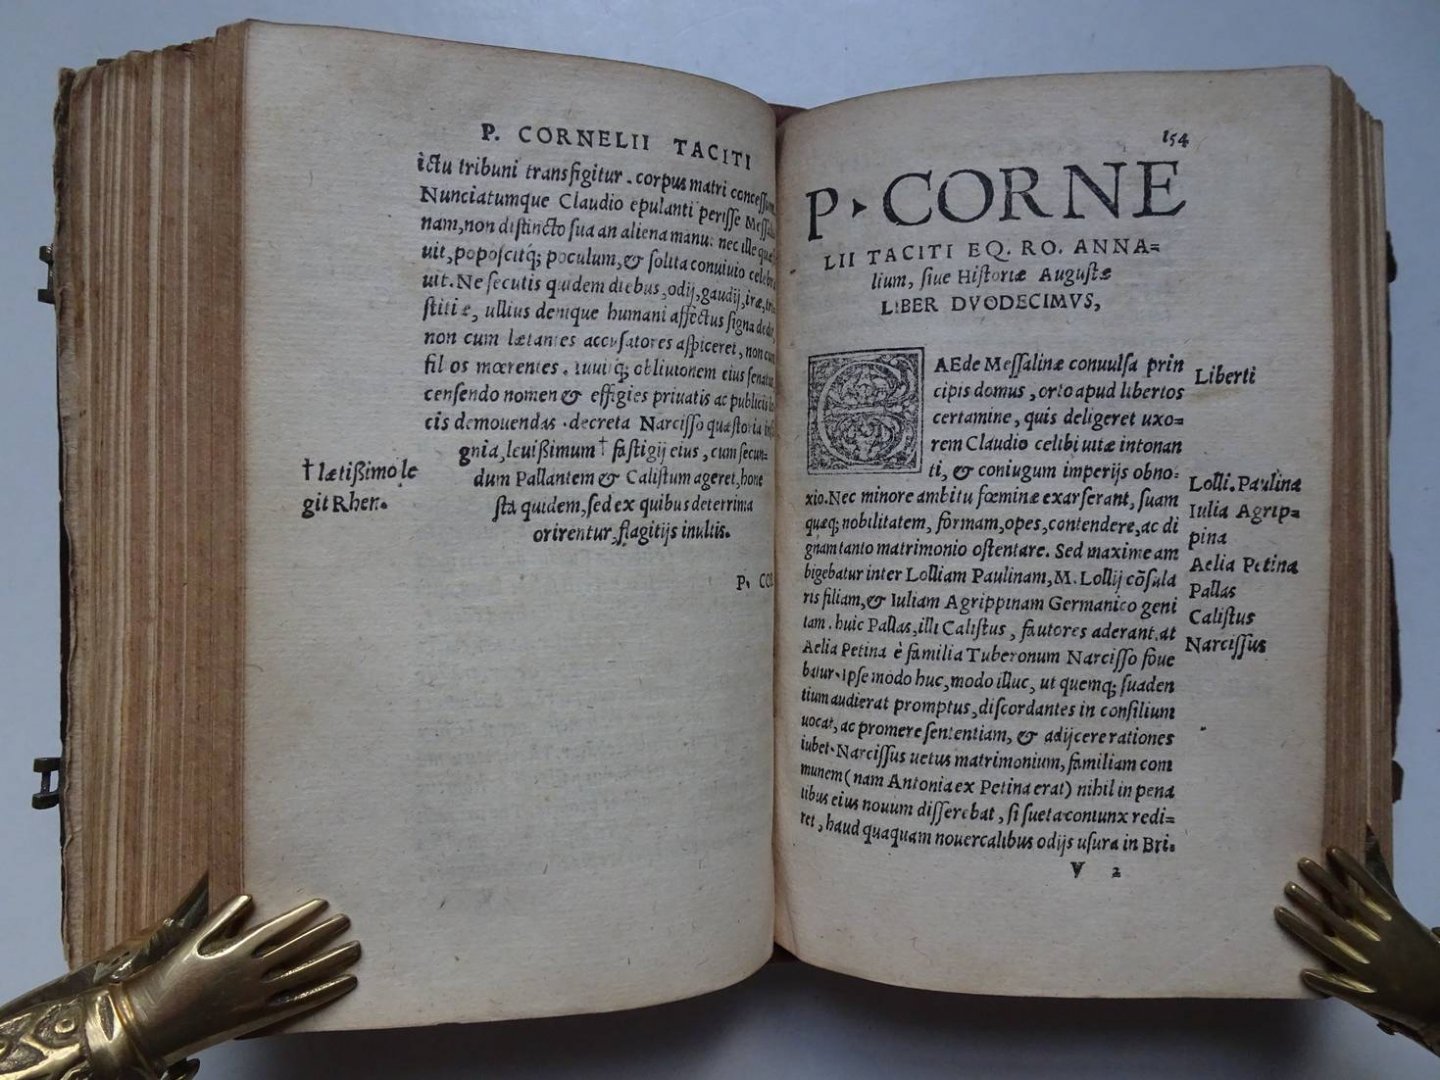 P. CORNELII TACITI
ictu tribuni transfigitur . corpus matri concessum
Nunciatumque Claudio epulanti perisse Messali
nam, non distincto sua an aliena manu: nec ille quæ
uit, poposcitq; poculum, & solita conuiuio celebra
uit. Ne secutis quidem diebus, odij, gaudij, iræ, tri
stitiæ, ullius denique humani affectus signa dedit,
non cum lætantes accusatores aspiceret, non cum
filios mœrentes. iuuitq; obliuionem eius senatus
censendo nomen & effigies priuatis ac publicis lo
cis demouendas . decreta Narcisso quæstoria insi
gnia, leuißimum † fastigij eius, cum secun=
dum Pallantem & Calistum ageret, hone
sta quidem, sed ex quibus deterrima
orirentur, flagitijs inultis.
† lætißimo le
git Rhen.
P. COR
154
P. CORNE
LII TACITI EQ. RO. ANNA=
lium, siue Historiæ Augustæ
LIBER DVODECIMVS,
CAEde Messalinæ conuulsa prin
cipis domus, orto apud libertos
certamine, quis deligeret uxo=
rem Claudio celibi uitæ intonan
ti, & coniugum imperijs obno=
xio. Nec minore ambitu fœminæ exarserant, suam
quæq; nobilitatem, formam, opes, contendere, ac di
gnam tanto matrimonio ostentare. Sed maxime am
bigebatur inter Lolliam Paulinam, M. Lollij cõsula
ris filiam, & Iuliam Agrippinam Germanico geni
tam. huic Pallas, illi Calistus, fautores aderant. at
Aelia Petina è familia Tuberonum Narcisso foue
batur. Ipse modo huc, modo illuc, ut quemq; suaden
tium audierat promptus, discordantes in consilium
uocat, ac promere sententiam, & adijcere rationes
iubet. Narcissus uetus matrimonium, familiam com
munem (nam Antonia ex Petina erat) nihil in pena
tibus eius nouum disserebat, si sueta coniunx redi=
ret, haud quaquam nouercalibus odijs usura in Bri.
V 2
Liberti
Lolli. Paulina
Iulia Agrip=
pina
Aelia Petina
Pallas
Calistus
Narcissus